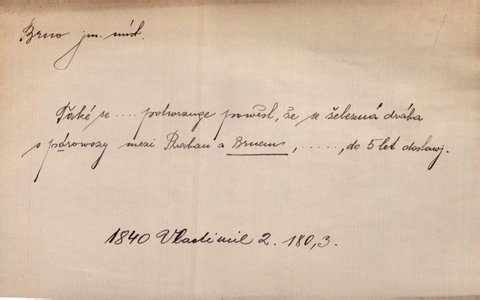 Brno jm. míst.
Také se .... potwrzuge powěst, že se železná dráha
s párowozy mezi Prahau a Brnem, ....., do 5 let dostawj.
1840 Vlastimil 2. 180,3.